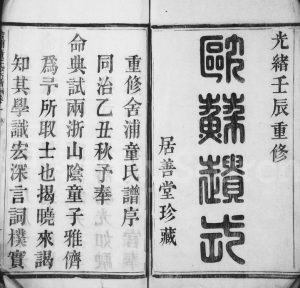 光緒壬辰重修
歐蘇遺式
居善堂珍藏
重修舍浦童氏譜序
同治乙丑秋予奉
命典試兩浙山陰童子雅儕
為予所取士也揭曉來謁
知其學識宏深言詞樸實